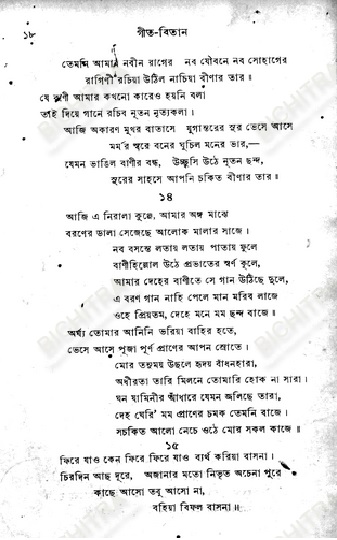 ১৮
গীত-বিতান
তেমনি আমার নবীন রাগের নব যৌবনে নব সোহাগের
রাগিণী রচিয়া উঠিল নাচিয়া বীণার তার॥
যে বাণী আমার কখনো কারেও হয়নি বলা
তাই দিয়ে গানে রচিব নূতন নৃত্যকলা।
আজি অকারণ মুখর বাতাসে যুগান্তরের সুর ভেসে আসে
মর্মর স্বরে বনের ঘুচিল মনের ভার,—
যেমন ভাঙিল বাণীর বন্ধ, উচ্ছ্বসি উঠে নূতন ছন্দ,
সুরের সাহসে আপনি চকিত বীণার তার॥
১৪
আজি এ নিরালা কুঞ্জে, আমার অঙ্গ মাঝে
বরণের ডালা সেজেছে আলোক মালার সাজে।
নব বসন্তে লতায় লতায় পাতায় ফুলে
বাণীহিল্লোল উঠে প্রভাতের স্বর্ণ কূলে,
আমার দেহের বাণীতে সে গান উঠিছে দুলে,
এ বরণ গান নাহি পেলে মান মরিব লাজে
ওহে প্রিয়তম, দেহে মনে মম ছন্দ বাজে॥
অর্ঘ্য তোমার আনিনি ভরিয়া বাহির হতে,
ভেসে আসে পূজা পূর্ণ প্রাণের আপন স্রোতে।
মোর তনুময় উছলে হৃদয় বাঁধনহারা,
অধীরতা তারি মিলনে তোমারি হোক না সারা।
ঘন যামিনীর আঁধারে যেমন জ্বলিছে তারা,
দেহ ঘেরি' মম প্রাণের চমক তেমনি বাজে।
সচকিত আলো নেচে ওঠে মোর সকল কাজে॥
১৫
ফিরে যাও কেন ফিরে ফিরে যাও ব্যর্থ করিয়া বাসনা।
চিরদিন আছ দূরে, অজানার মতো নিভৃত অচেনা পুরে
কাছে আসো তবু আসো না,
বহিয়া বিফল বাসনা॥